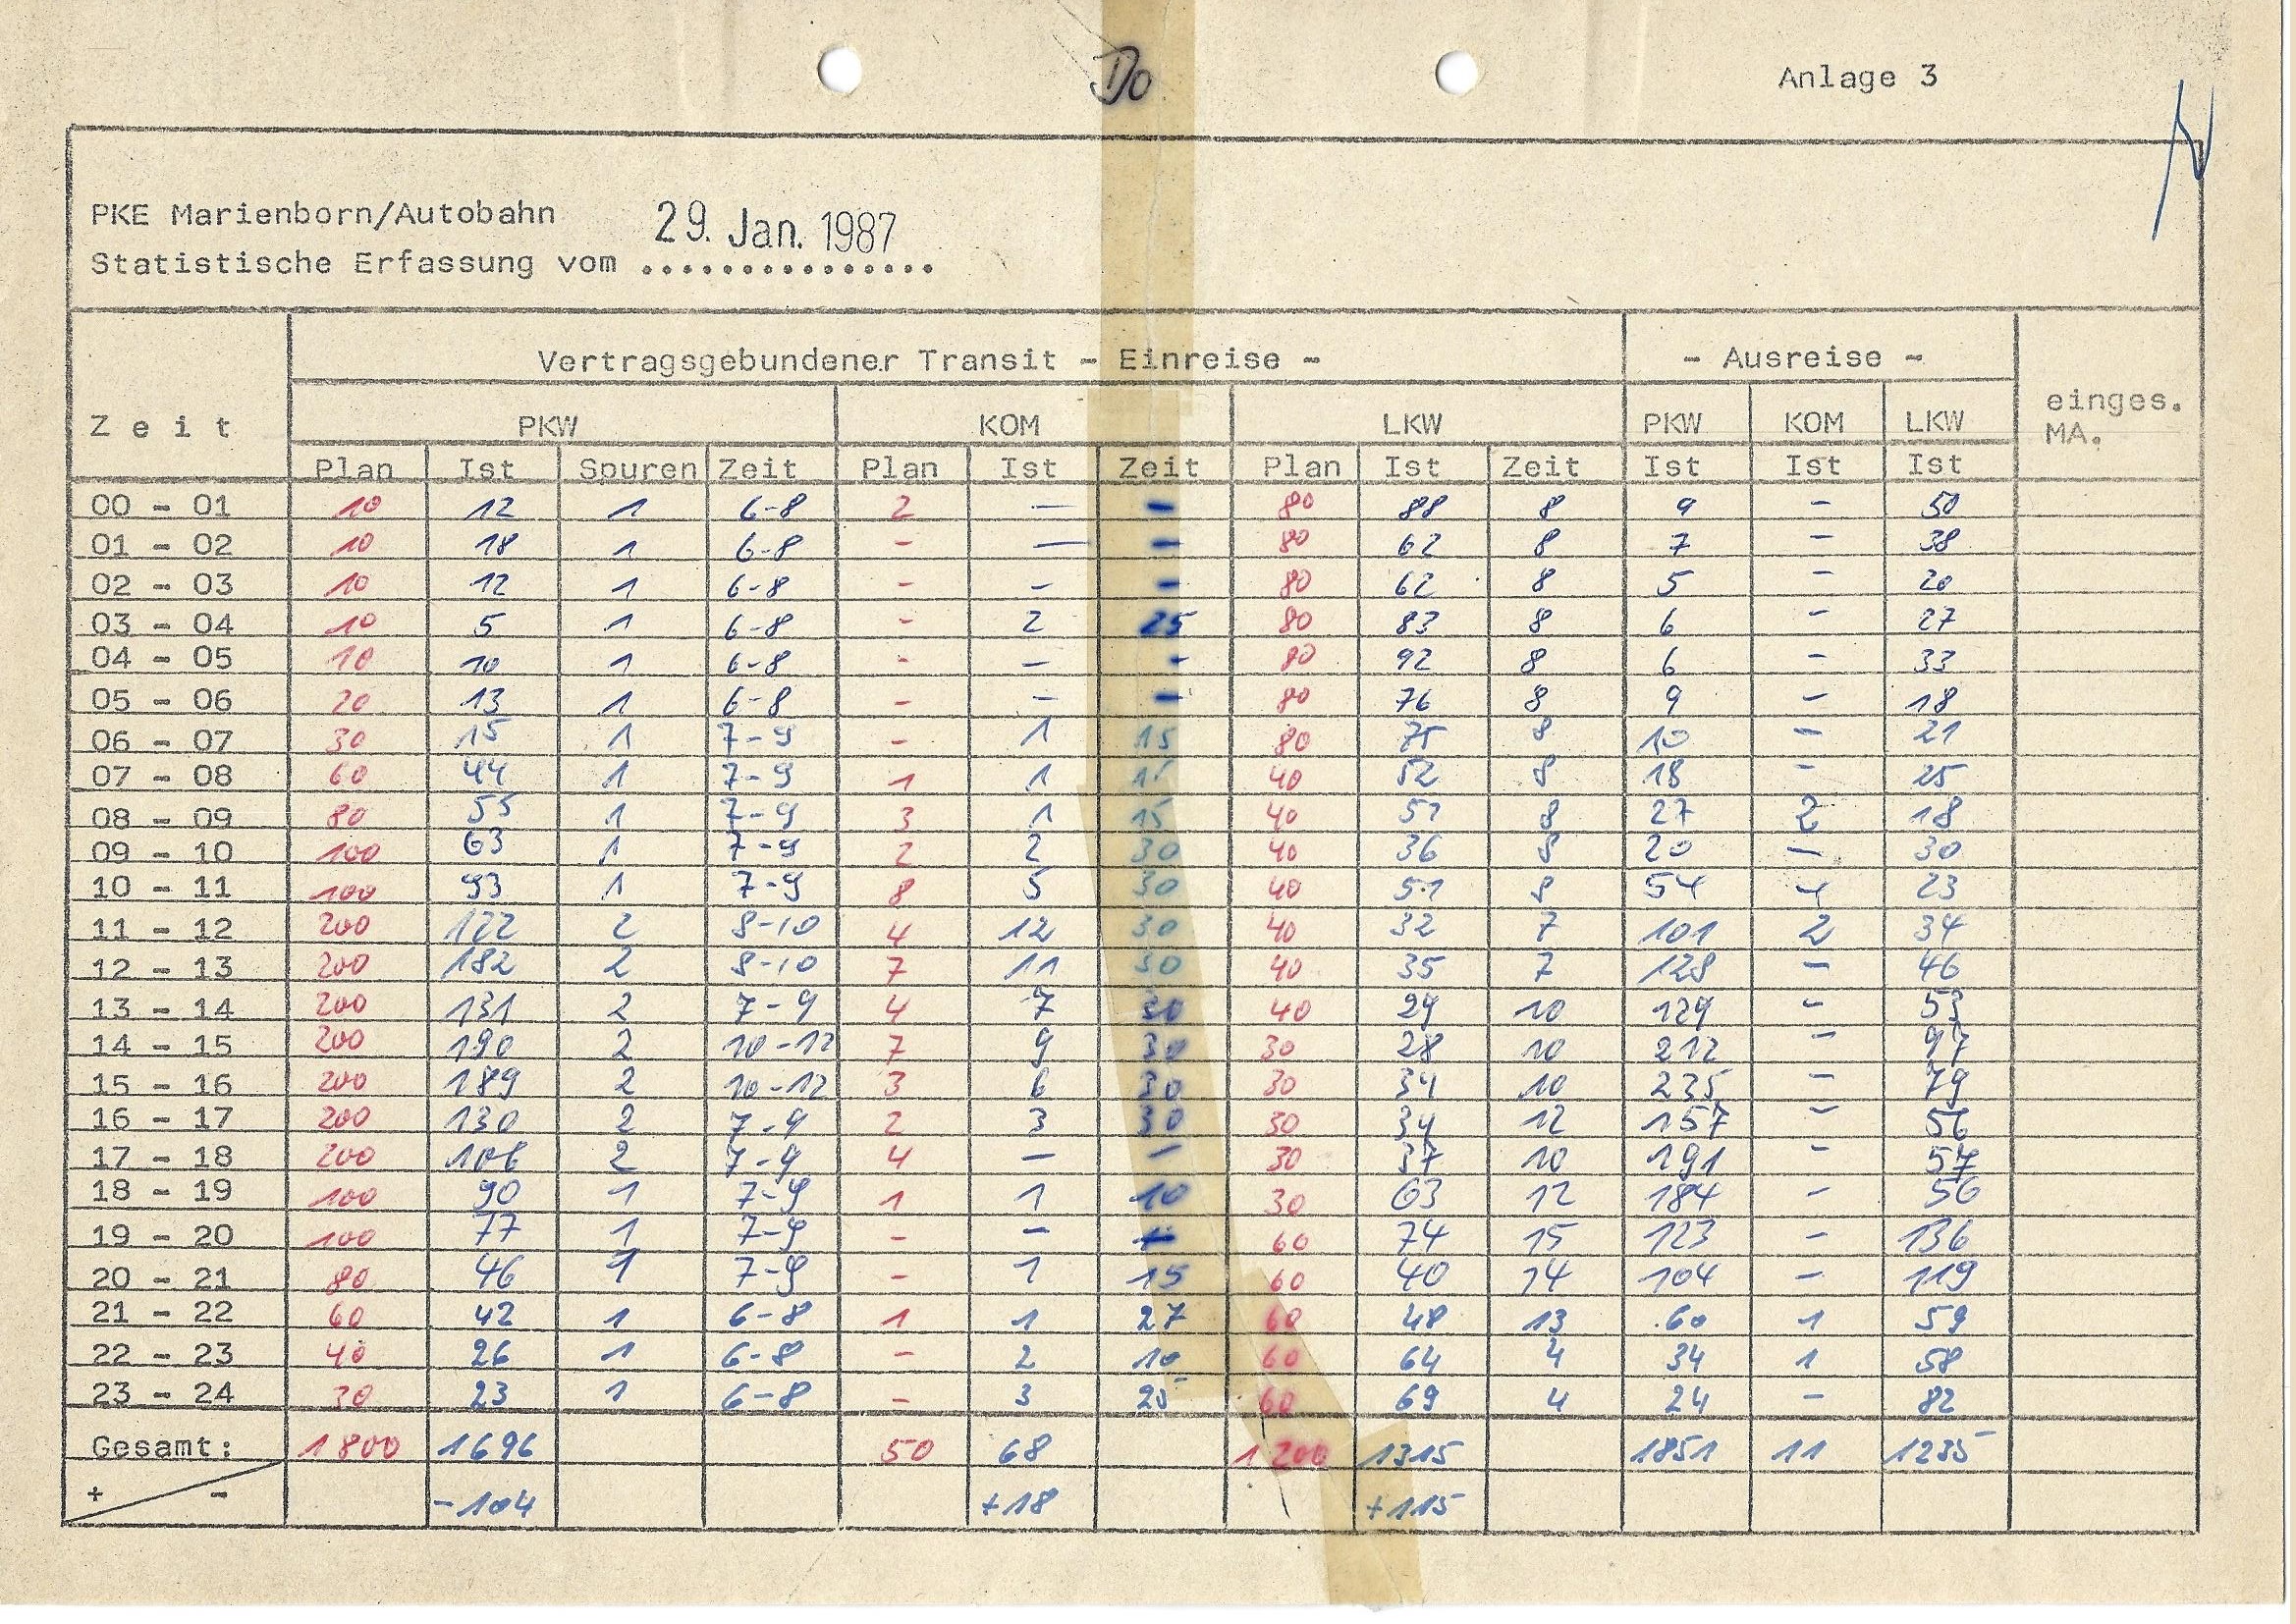 Do
Anlage 3
PKE Marienborn/Autobahn
29. Jan. 1987
Statistische Erfassung vom ...............
Zeit Vertragsgebundener Transit - Einreise - - Ausreise - einges. MA.
PKW KOM LKW PKW KOM LKW
Plan Ist Spuren Zeit Plan Ist Zeit Plan Ist Zeit Ist Ist Ist
00 - 01 10 12 1 6-8 2 — - 80 88 8 9 - 50
01 - 02 10 18 1 6-8 - — - 80 62 8 7 - 38
02 - 03 10 12 1 6-8 - - - 80 62 8 5 - 20
03 - 04 10 5 1 6-8 - 2 25 80 83 8 6 - 27
04 - 05 10 10 1 6-8 - - - 80 92 8 6 - 33
05 - 06 20 13 1 6-8 - - - 80 76 8 9 - 18
06 - 07 30 15 1 7-9 - 1 15 80 75 8 10 - 21
07 - 08 60 44 1 7-9 1 1 15 40 52 8 18 - 25
08 - 09 80 55 1 7-9 3 1 15 40 8 27 2 18
09 - 10 100 63 1 7-9 2 2 30 40 36 8 20 - 30
10 - 11 100 93 1 7-9 8 5 30 40 51 8 54 4 23
11 - 12 200 122 2 8-10 4 12 30 40 32 7 101 2 34
12 - 13 200 182 2 8-10 7 11 30 40 35 7 128 - 46
13 - 14 200 131 2 7-9 4 7 30 40 29 10 129 - 53
14 - 15 200 190 2 10-12 7 9 30 30 28 10 212 - 97
15 - 16 200 189 2 10-12 3 6 30 30 34 10 235 - 79
16 - 17 200 130 2 7-9 2 3 30 30 34 12 157 - 56
17 - 18 200 108 2 7-9 4 - - 30 37 10 191 - 57
18 - 19 100 90 1 7-9 1 1 10 30 63 12 184 - 56
19 - 20 100 77 1 7-9 - - - 60 74 15 123 - 136
20 - 21 80 46 1 7-9 - 1 15 60 40 14 104 - 119
21 - 22 60 42 1 6-8 1 1 27 60 48 13 60 1 59
22 - 23 40 26 1 6-8 - 2 10 60 64 4 34 1 58
23 - 24 30 23 1 6-8 - 3 25 60 69 4 24 - 82
Gesamt: 1800 1696 50 68 1200 1315 1851 11 1235
+ - -104 +18 +115